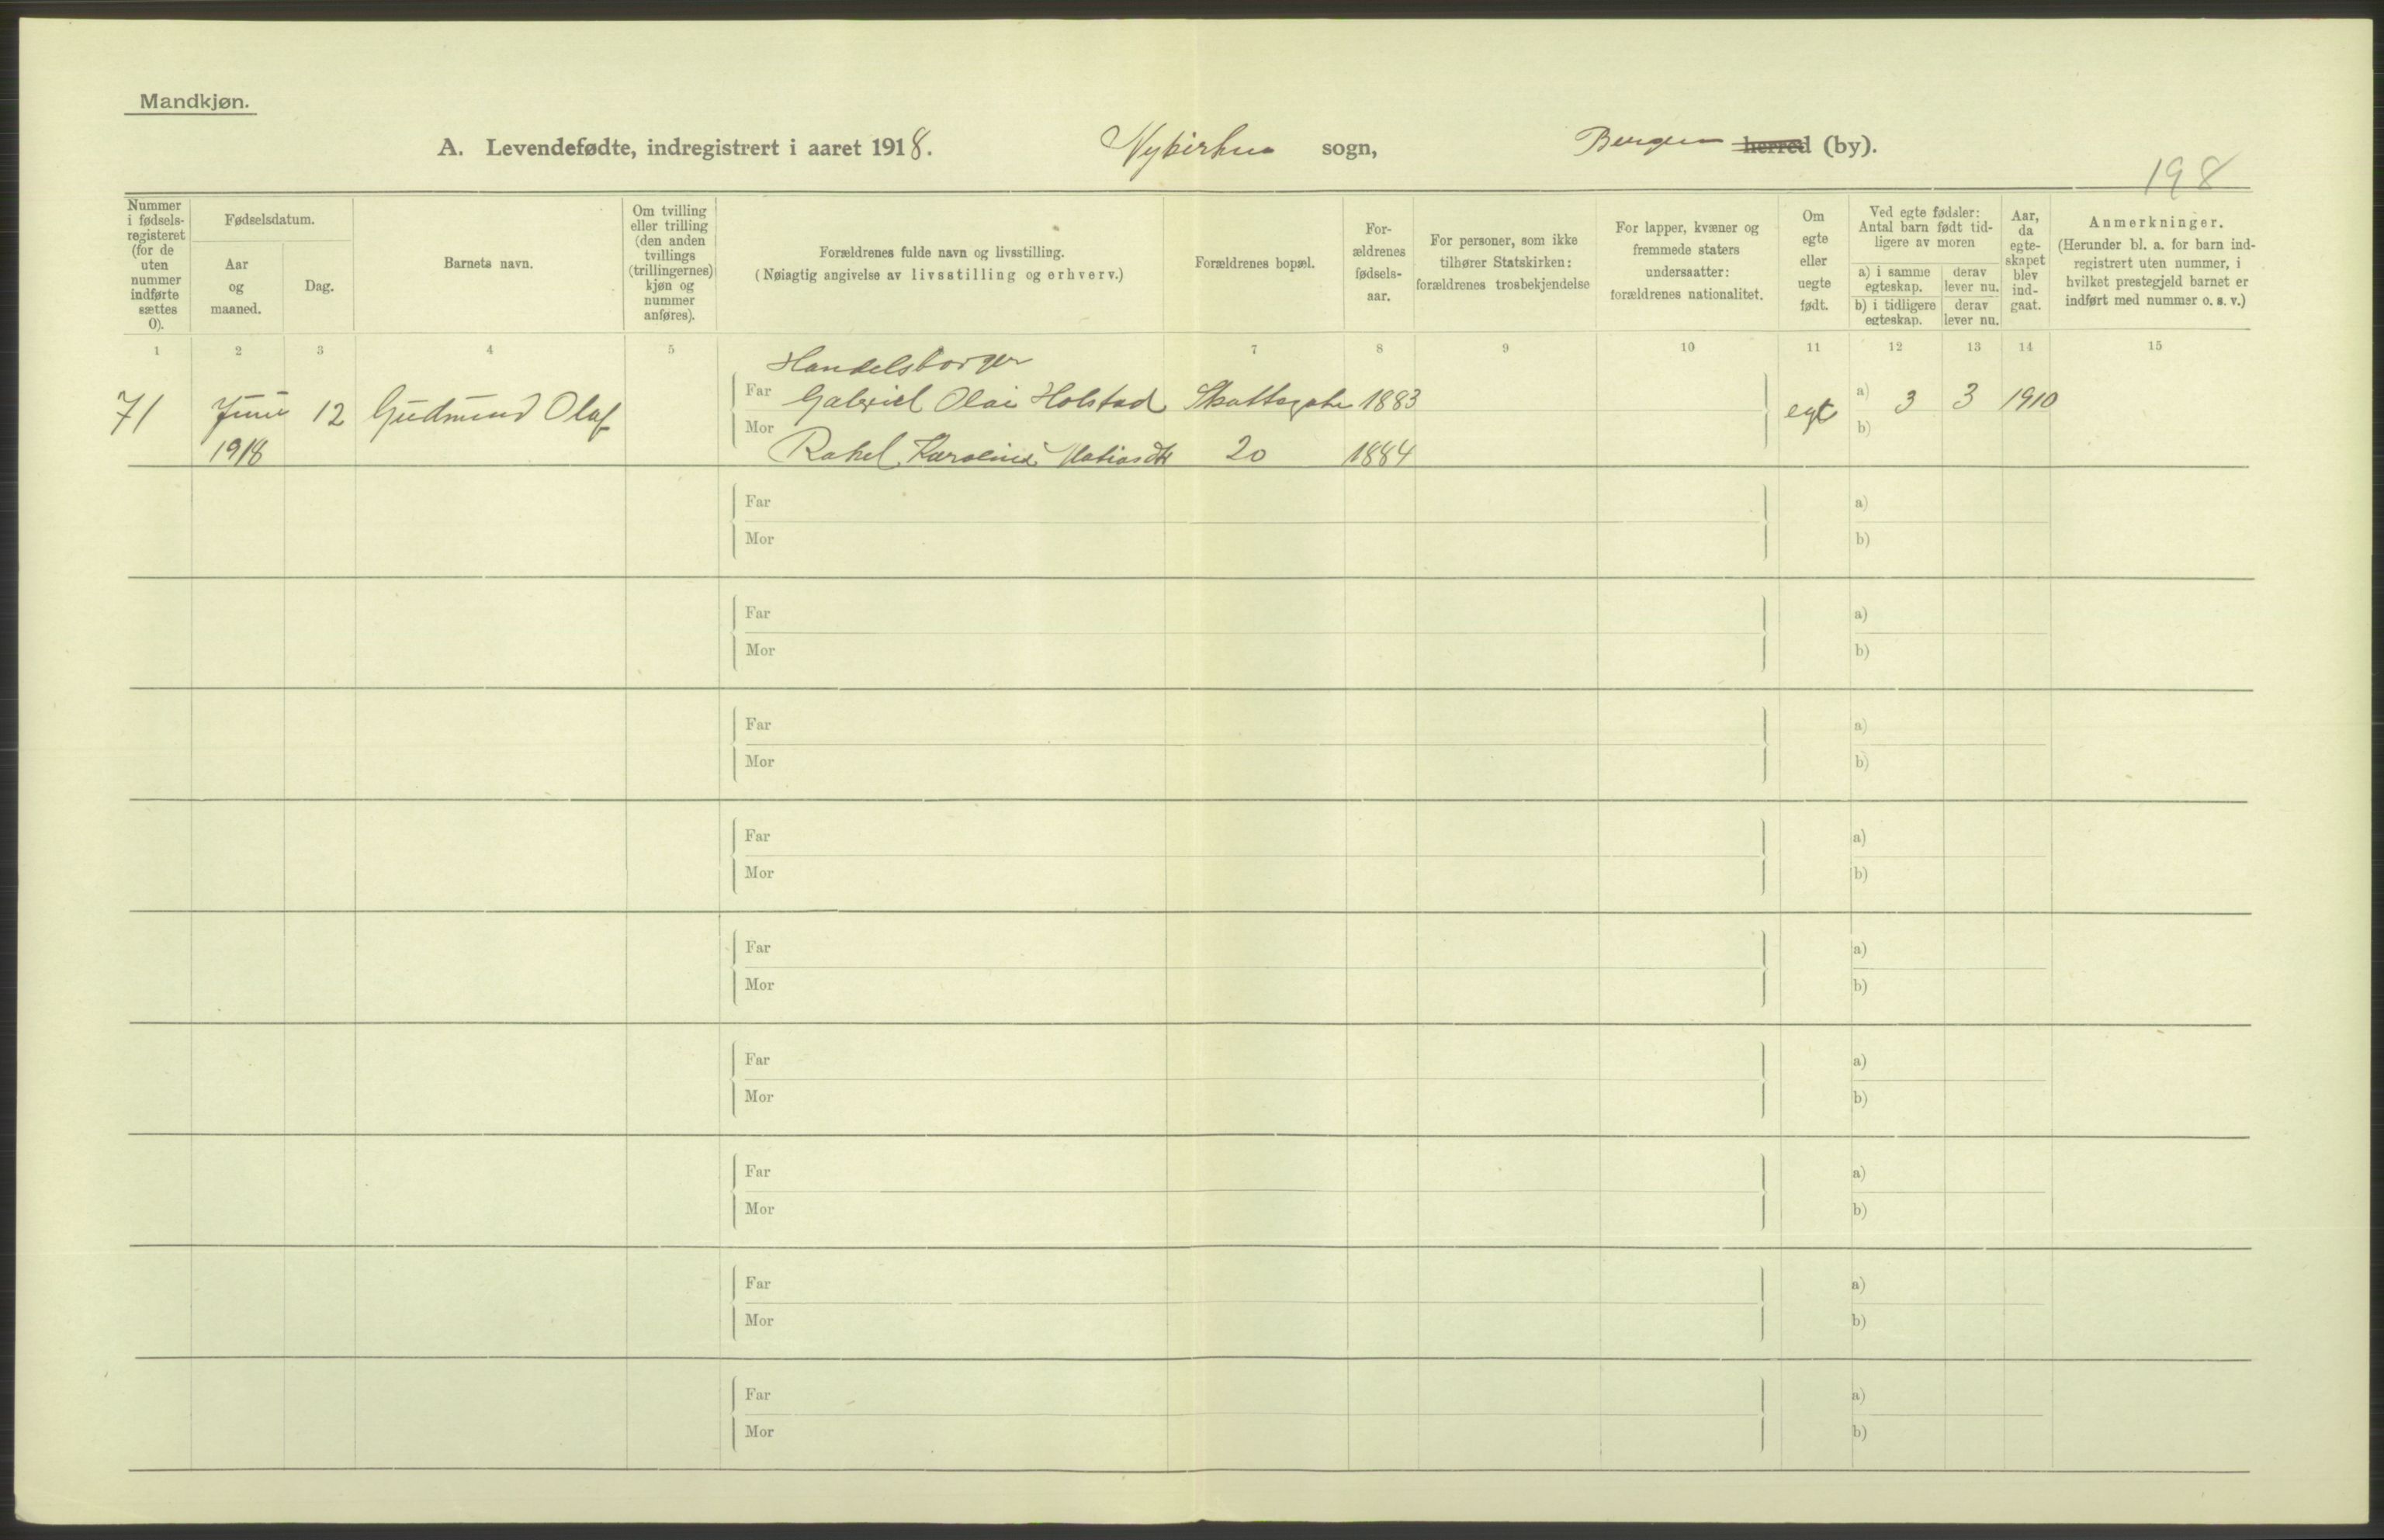 Mandkjøn.
A. Levendefødte, indregistrert i aaret 1918. Nykirken sogn, Bergen herred (by).
198
Nummer i fødsels-registeret (for de uten nummer indførte sættes 0).
Fødselsdatum.
Aar og maaned.
Dag.
Barnets navn.
Om tvilling eller trilling (den anden tvillings (trillingernes) kjøn og nummer anføres).
Forældrenes fulde navn og livsstilling.
(Nøiagtig angivelse av livsstilling og erhverv.)
Forældrenes bopæl.
For-ældrenes fødsels-aar.
For personer, som ikke tilhører Statskirken: forældrenes trosbekjendelse
For lapper, kvæner og fremmede staters undersaatter: forældrenes nationalitet.
Om egte eller uegte født.
Ved egte fødsler: Antal barn født tid-ligere av moren
a) i samme egteskap.
derav lever nu.
b) i tidligere egteskap.
derav lever nu.
Aar, da egte-skapet blev ind-gaat.
Anmerkninger.
(Herunder bl. a. for barn ind-registrert uten nummer, i hvilket prestegjeld barnet er indført med nummer o. s. v.)
1 2 3 4 5 7 8 9 10 11 12 13 14 15
Handelsborger
71 Juni 12 Gudmund Olaf Far Gabriel Olai Holstad 1883 egt a) 3 3 1910
Mor b)
1918 Rakel 20 1884
Far a)
Mor b)
Far a)
Mor b)
Far a)
Mor b)
Far a)
Mor b)
Far a)
Mor b)
Far a)
Mor b)
Far a)
Mor b)
Far a)
Mor b)
Far a)
Mor b)